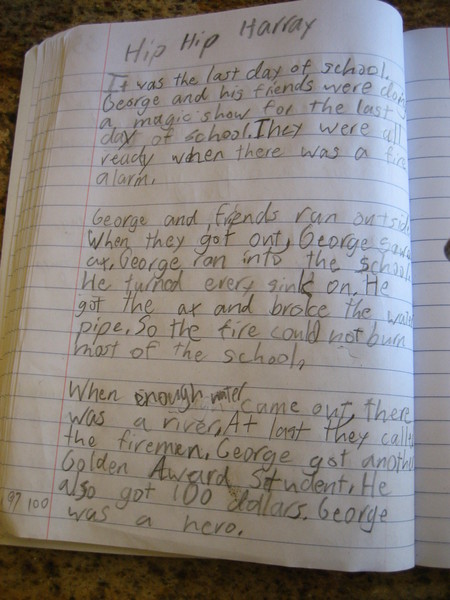 Hip Hip Harray
It was the last day of school.
George and his friends were doing
a magic show for the last
day of school. They were all
ready when there was a fire
alarm.
George and friends run outside
When they got out, George saw
ax. George ran into the school
He turned every sink on. He
got the ax and broke the water
pipe. So the fire could not burn
most of the school,
When enough water came out, there
was a river, At last they call
the firemen. George got another
Golden Award Student. He
also got 100 dollars. George
was a hero.
97 100